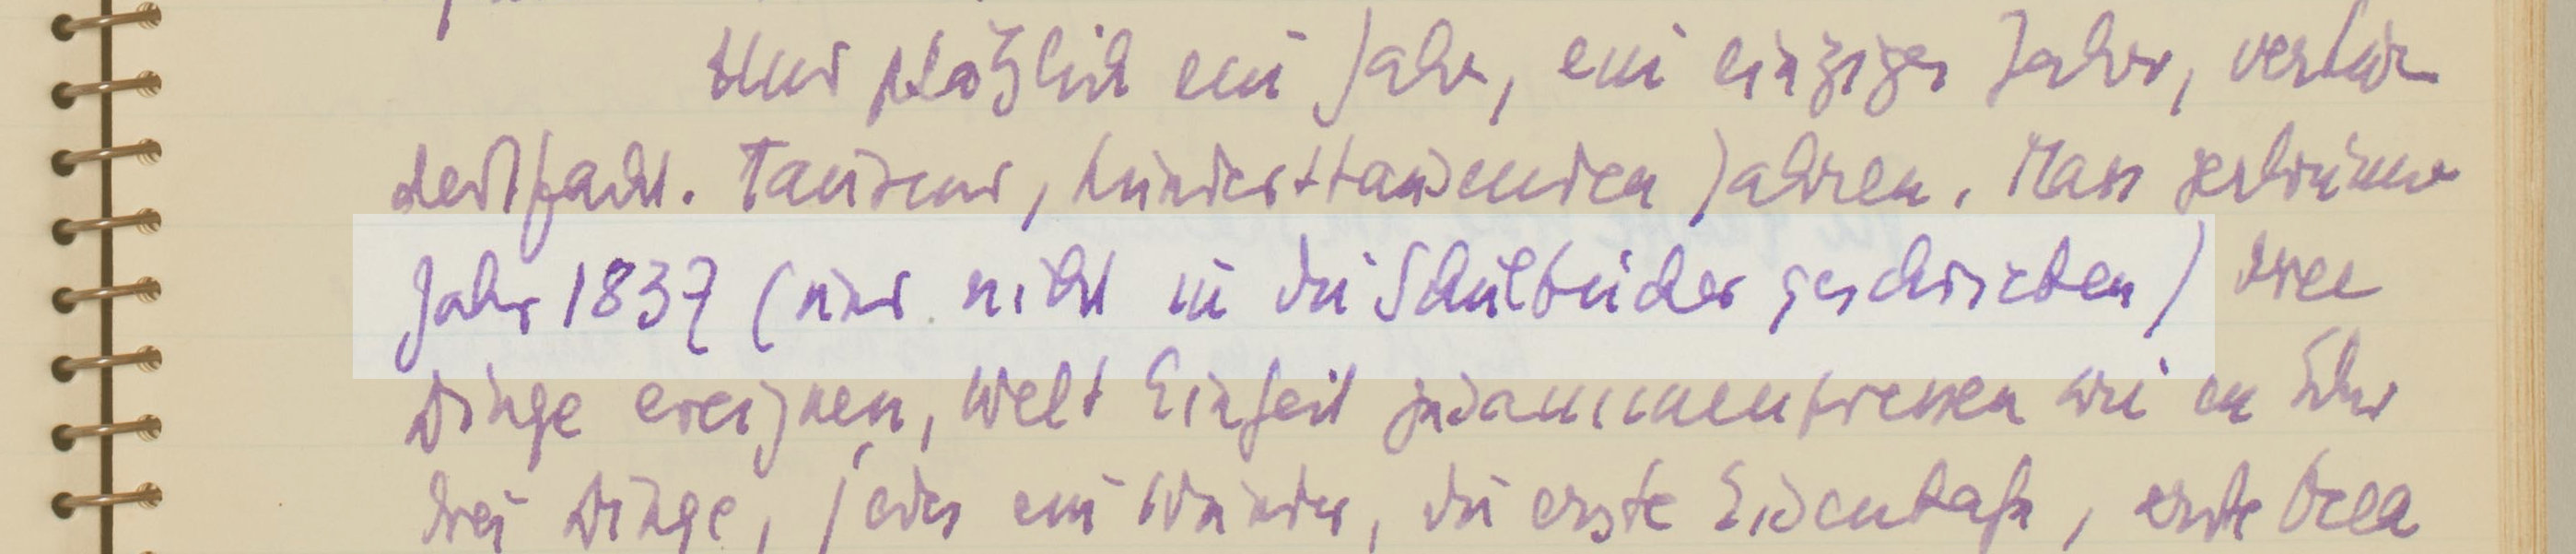 Und plötzlich ein Jahr, ein einziges Jahr, verhun
dertfacht. Tausend, hunderttausenden Jahren. Man
Jahr 1837 (nur nicht in die Schulbücher geschrieben) drei
Dinge ereignen, Welt Einheit zusammenpressen wie ein
drei Dinge, jedes ein Wunder, die erste Eisenbahn, erste Ocea